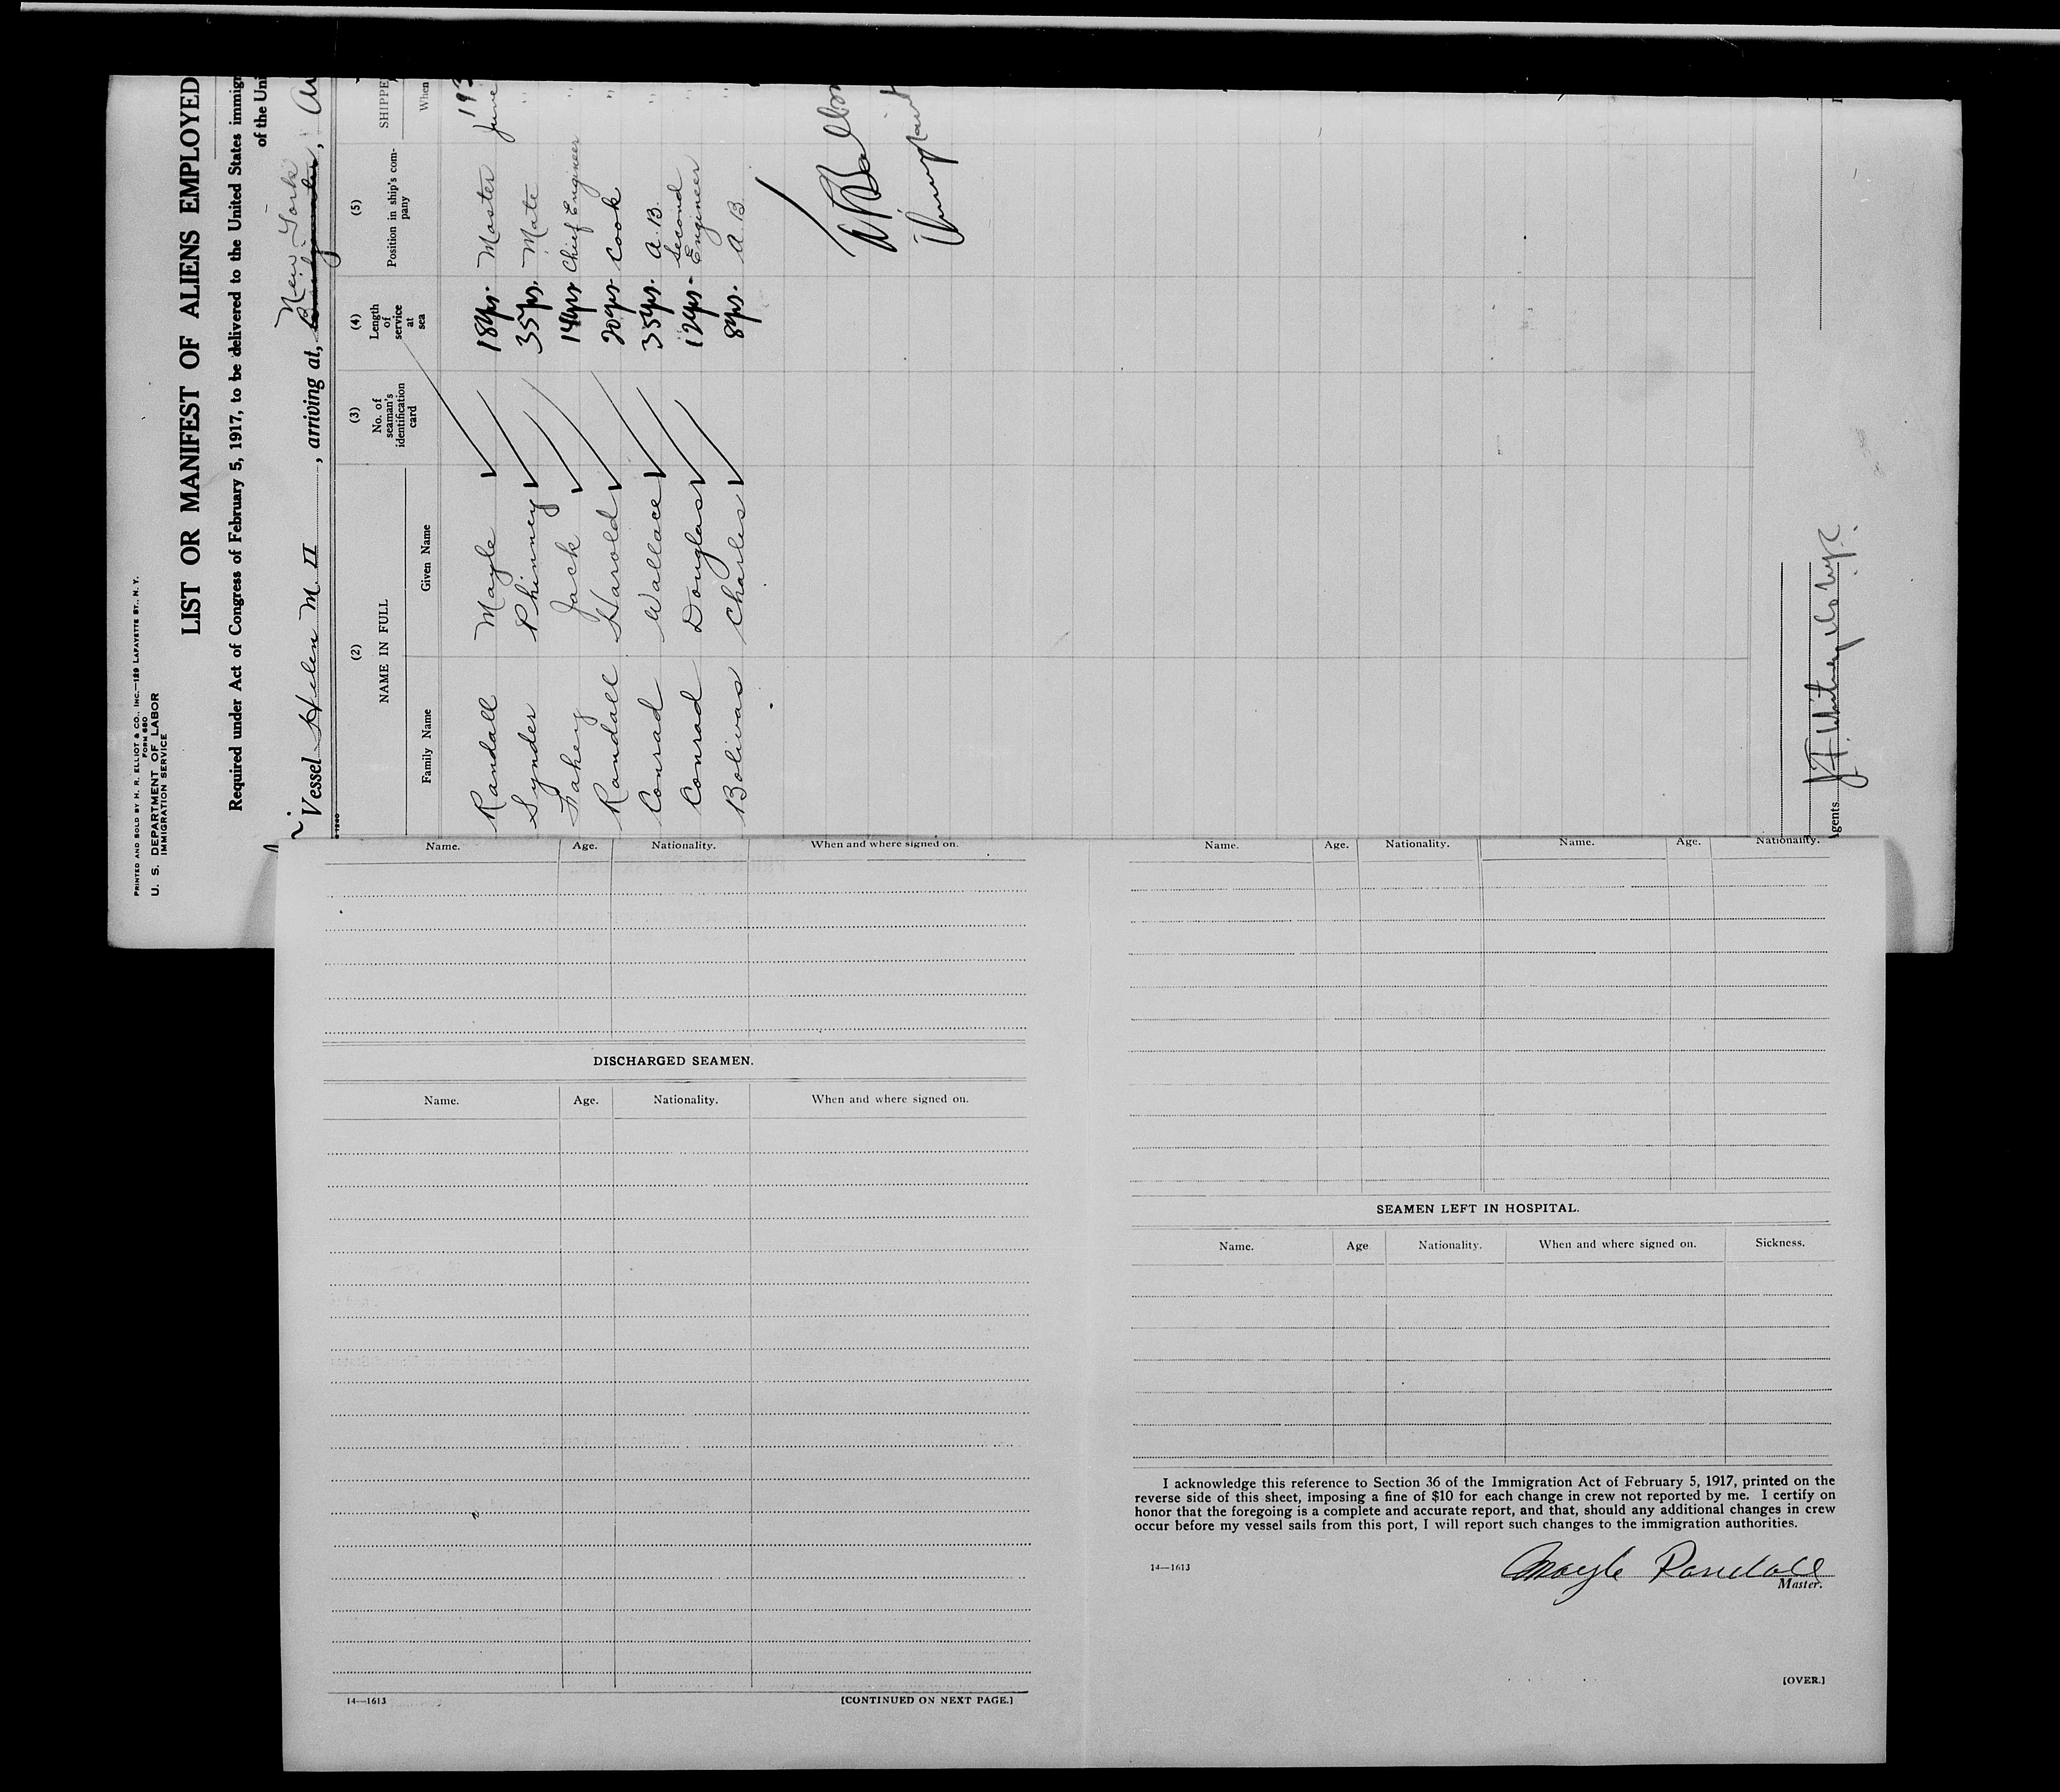 PRINTED AND SOLD BY H. R. ELLIOT & CO., INC.—129 LAFAYETTE ST., N. Y.
FORM 680
U. S. DEPARTMENT OF LABOR
IMMIGRATION SERVICE
LIST OR MANIFEST OF ALIENS EMPLOYED
Required under Act of Congress of February 5, 1917, to be delivered to the United States immigr
of the Uni
New York
Vessel Helen M II, arriving at,
(2) (3) (4) (5)
NAME IN FULL No. of seaman's identification card Length of service at sea Position in ship's company SHIPPE
Family Name Given Name When
193
Randall Mayle 18yrs. Master June
Synder Phinney 35yrs. Mate "
Fahey Jack 14yrs Chief Engineer "
Randall Harold 20yrs Cook "
Conrad Wallace 35yrs. A.B. "
Conrad Douglas 12yrs- Second Engineer "
Bolivas Charles 8yrs. A.B. "
gents
Name. Age. Nationality. When and where signed on.
DISCHARGED SEAMEN.
Name. Age. Nationality. When and where signed on.
14—1613 [CONTINUED ON NEXT PAGE.]
Name. Age. Nationality. Name. Age. Nationality.
SEAMEN LEFT IN HOSPITAL.
Name. Age Nationality. When and where signed on. Sickness.
I acknowledge this reference to Section 36 of the Immigration Act of February 5, 1917, printed on the
reverse side of this sheet, imposing a fine of $10 for each change in crew not reported by me. I certify on
honor that the foregoing is a complete and accurate report, and that, should any additional changes in crew
occur before my vessel sails from this port, I will report such changes to the immigration authorities.
14—1613
Mayle Randall
Master.
[OVER.]